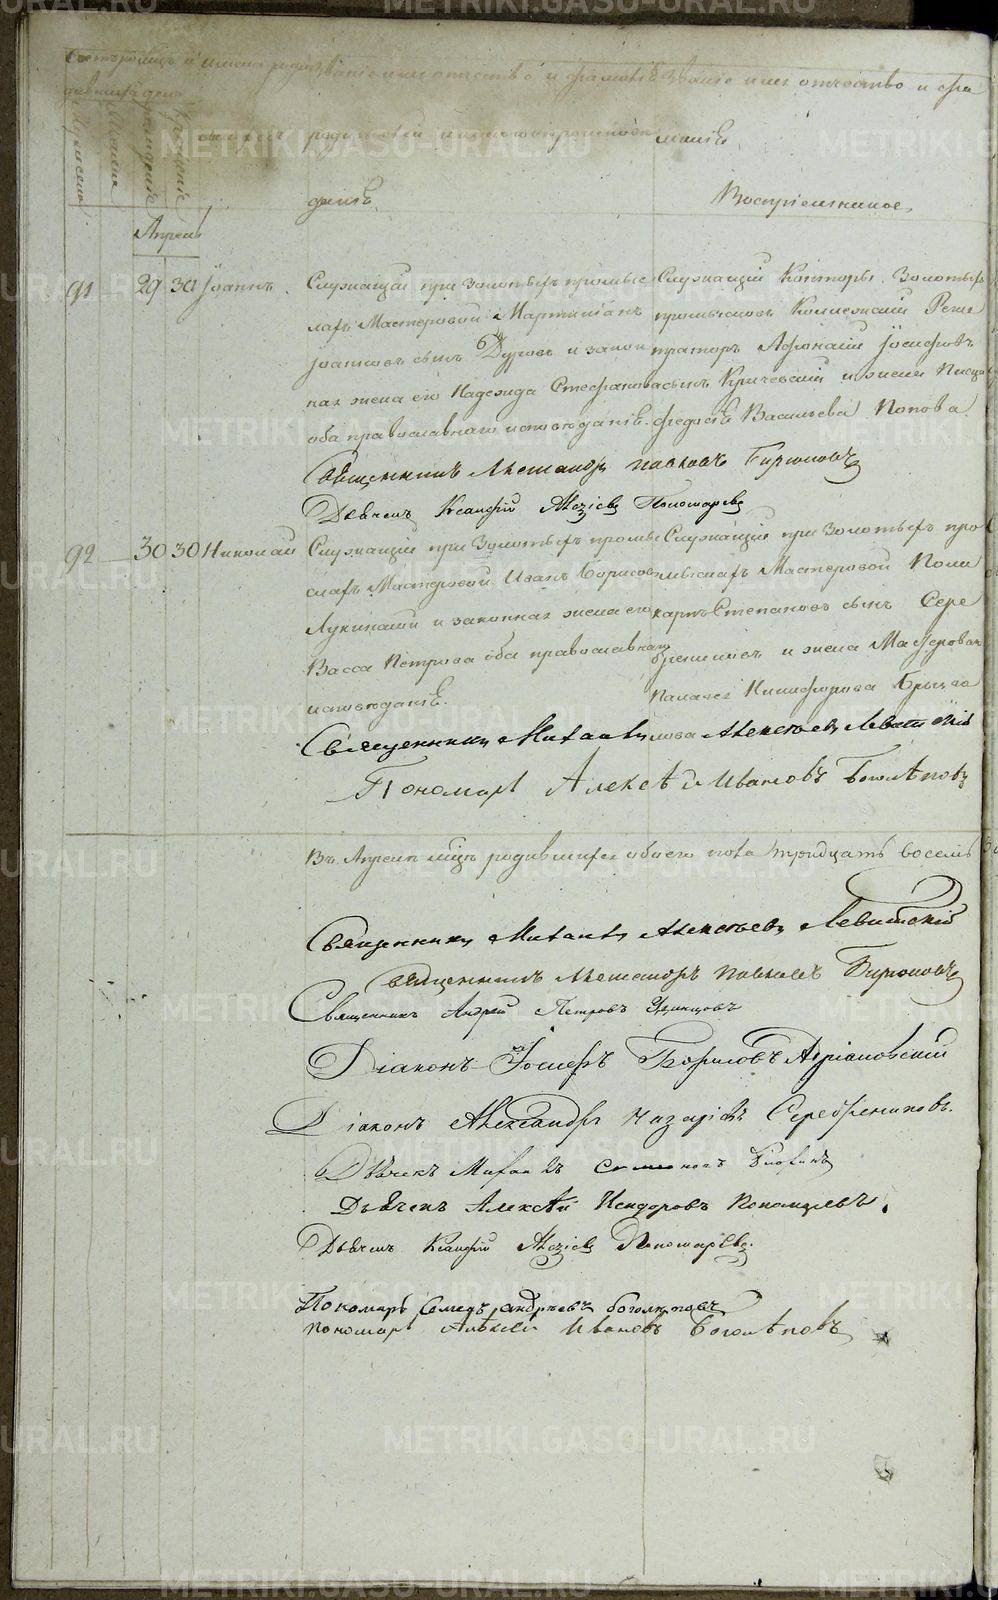 Званіе имя отчество и фамилія
Званіе имя отчество и фа
родителей и какого вѣроисповѣ
миліе
даніе
Воспріемниковъ
Апрель
91 29 30 Іоаннъ
Служащій при Золотыхъ промыс
лахъ Мастеровой Мартиніанъ
Іоанновъ сынъ Дуровъ и закон
ная жена его Надежда Стефанова
оба православнаго исповѣданія.
Служащій Конторы Золотыхъ
промысловъ Коллежскій Реги
страторъ Афонасій Іосифовъ
сынъ Кричевскій и жена Писца
Федосія Васильева Попова
Священникъ Александръ Павловъ Бирюковъ
Дьячекъ Ксанфій Пономаревъ
92 30 30 Николай
Служащій при Золотыхъ промыс
лахъ Мастеровой Иванъ Борисовъ
Лукиныхъ и законная жена его
Васса Петрова оба православнаго
исповѣданія.
Служащій при Золотыхъ про
мыслахъ Мастеровой Поли
карпъ Степановъ сынъ Сере
бренниковъ и жена Мастероваго
Палагея Никифорова Брызга
лова
Священникъ Михаилъ Алексѣевъ Левитскій
Пономарь Алексѣй Ивановъ Боголѣповъ
Въ Апрелѣ мцѣ родившихся обоего пола тридцать восемь
Священникъ Михаилъ Алексѣевъ Левитскій
Священникъ Александръ Павловъ Бирюковъ
Священникъ Андрей Петровъ Удинцовъ
Діаконъ Іосифъ Адріановскій
Діаконъ Александръ Назаріевъ Серебрениковъ.
Дьячекъ Михаилъ
Дьячекъ Алексѣй Исидоровъ Пономаревъ.
Дьячекъ Ксанфій Пономаревъ.
Пономарь Семенъ Андрѣевъ Боголѣповъ
Пономарь Алексѣй Ивановъ Боголѣповъ
METRIKI.GASO-URAL.RU